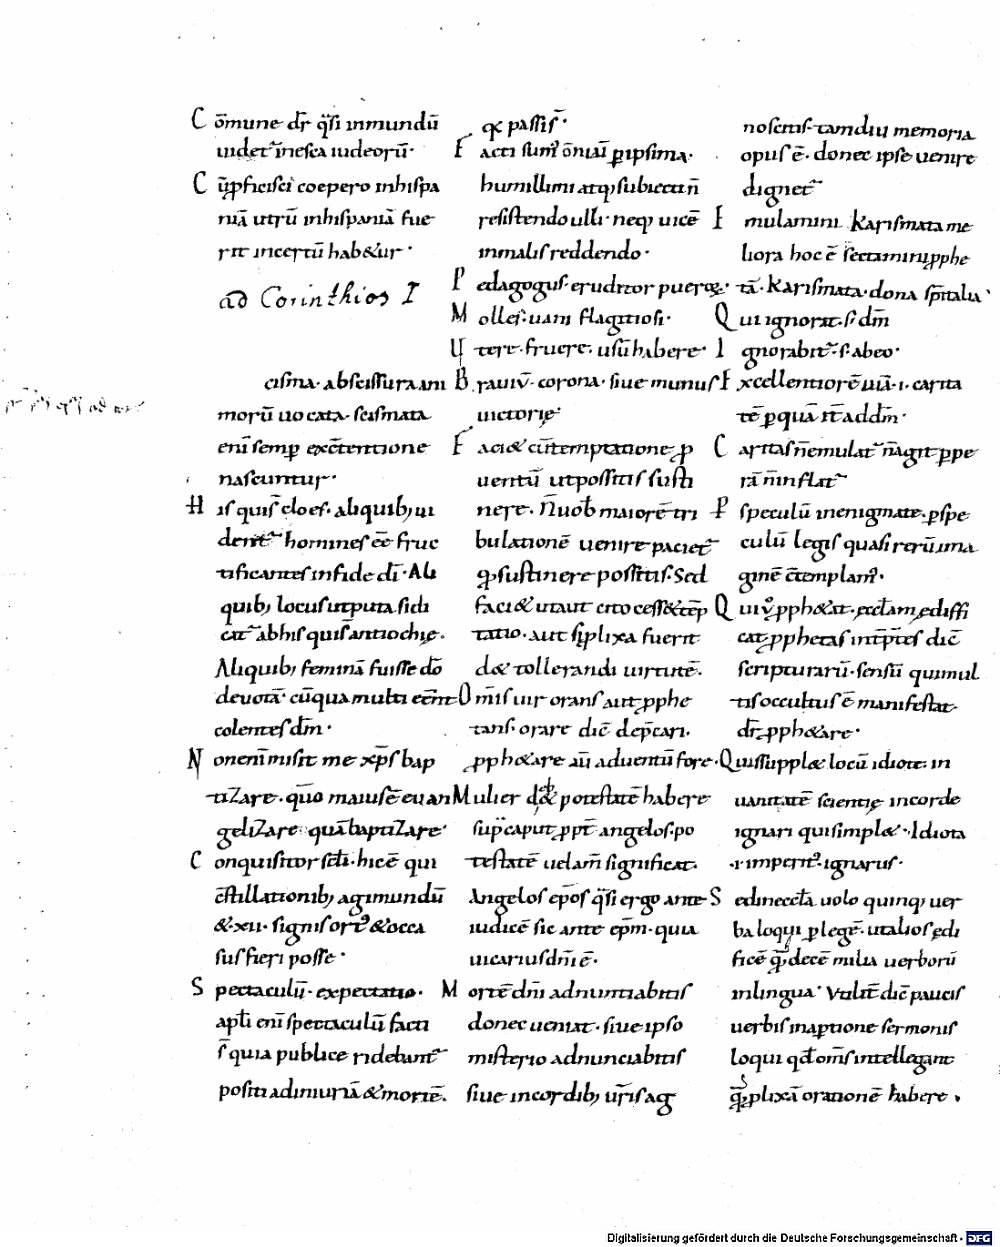 C ōmune dr̄ q̄si inmundū
uidet̄ īnesca iudeorū·
C ū ꝓficisci coepero inhispa
niā utrū inhispaniā fue
rit incertū hab&ur·
ad Corinthios I
cisma· abscissura ani
morū uocata· scismata
enī semꝑ ex c̄tentione
nascuntur·
H is quis̄ cloes· aliquib; ui
dent̄ homines eē fruc
tificantes infide dī· Ali
quib; locus utputa sidi
cat̄ abhis quis̄ antiochię·
Aliquib; feminā fuisse dō
deuotā· cū qua multi eēnt
colentes dm̄·
N onenī misit me xp̄s bap
tizare· quō maius ē euan
gelizare quā baptizare·
C onquisitor scl̄i· hic ē qui
c̄stillationib; agi mundū
&·xii· signis ort; & occa
sus fieri posse·
S pectaculū· expectatio·
apl̄i enī spectaculū facti
s̄ quia publice ridebant̄
positi adiniuriā & mortē·
qc̨ passis̄·
F acti sum; ōniū ꝑipsima·
humillimi atq; subiecti n̄
resistendo ulli· neq; uicē
inmalis reddendo·
P edagogus· eruditor pueroꝝ·
M olles· uani flagitiosi·
U tere· fruere· usū habere·
B rauiū· corona· siue munus
uictorię·
F aci& cū temptatione ꝓ
uentū utpossitis susti
nere· N̄ uob̄ maiorē tri
bulationē uenire paciet̄
qͣ sustinere possitis· Sed
faci& utaut cito cess& tēp
tatio· aut si ꝓlixa fuerit
d& tollerandi uirtutē·
O m̄is uir orans aut ꝓphe
tans· orare dic̄ dep̄cari·
ꝓph&are aū aduentū fore·
M ulier deb& potestatē habere
sup̄ caput ꝓpt̄ angelos· po
testatē uelam̄ significat·
Angelos ep̄os q̄si ergo ante
iudicē sic ante ep̄m· quia
uicarius dn̄i ē·
M ortē dn̄i adnuntiabitis
donec ueniat· siue ipso
misterio adnunciabitis
siue incordib; ur̄is ag
noscitis· tamdiu memoria
opus ē· donec ipse uenire
dignet̄
E mulamini karismata me
liora hoc ē sectamini ꝓphe
tā· Karismata· dona sp̄italia·
Q ui ignorat· si dm̄
I gnorabit̄· s· abeo·
E xcellentiorē uiā·i· carita
tē ꝑquā it̄ addm̄·
C aritas n̄emulat̄ n̄agit ꝑpe
rā n̄inflat̄
P speculū inenigmate· ꝑspe
culū legis quasi rerū ima
ginē c̄templam;·
Q ui ꝓph&at· eccl̄am ędiffi
cat ꝓphetas int̄pt̄es dic̄
scripturarū· sensū qui mul
tis occultus ē manifestat·
dr̄ ꝓph&are·
Q uis suppl& locū idiote· in
uanitatē scientię incorde
ignari quisimpl&· Idiota
·i· imperit;· ignarus·
S ed ineccl̄a uolo quinq; uer
ba loqui ꝑlegē· utalios ędi
ficē quā decē milia uerborū
inlingua· Utilit̄ dic̄ paucis
uerbis inaptione sermonis
loqui qd̄ om̄s intellegant
quā ꝓlixā orationē habere·